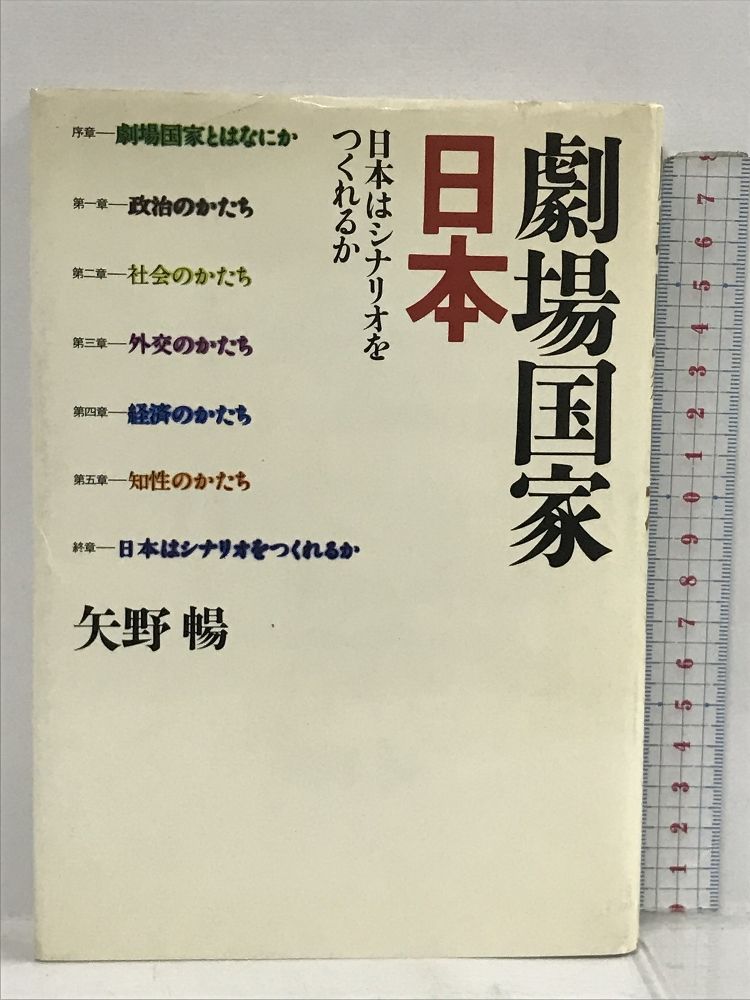 劇場国家
日本
日本はシナリオを
つくれるか
序章―劇場国家とはなにか
第一章―政治のかたち
第二章―社会のかたち
第三章―外交のかたち
第四章―経済のかたち
第五章―知性のかたち
終章―日本はシナリオをつくれるか
矢野 暢
8
7
6
5
4
3
2
1
0
9
8
7
6
5
4
3
2
1
0